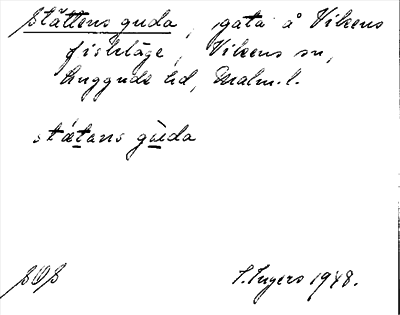 Stättens guda, gata å Vikens
fiskläge, Vikens sn,
Luggude hd, Malm.l.
stætans gùda
SOS
S. Ingers 1948.